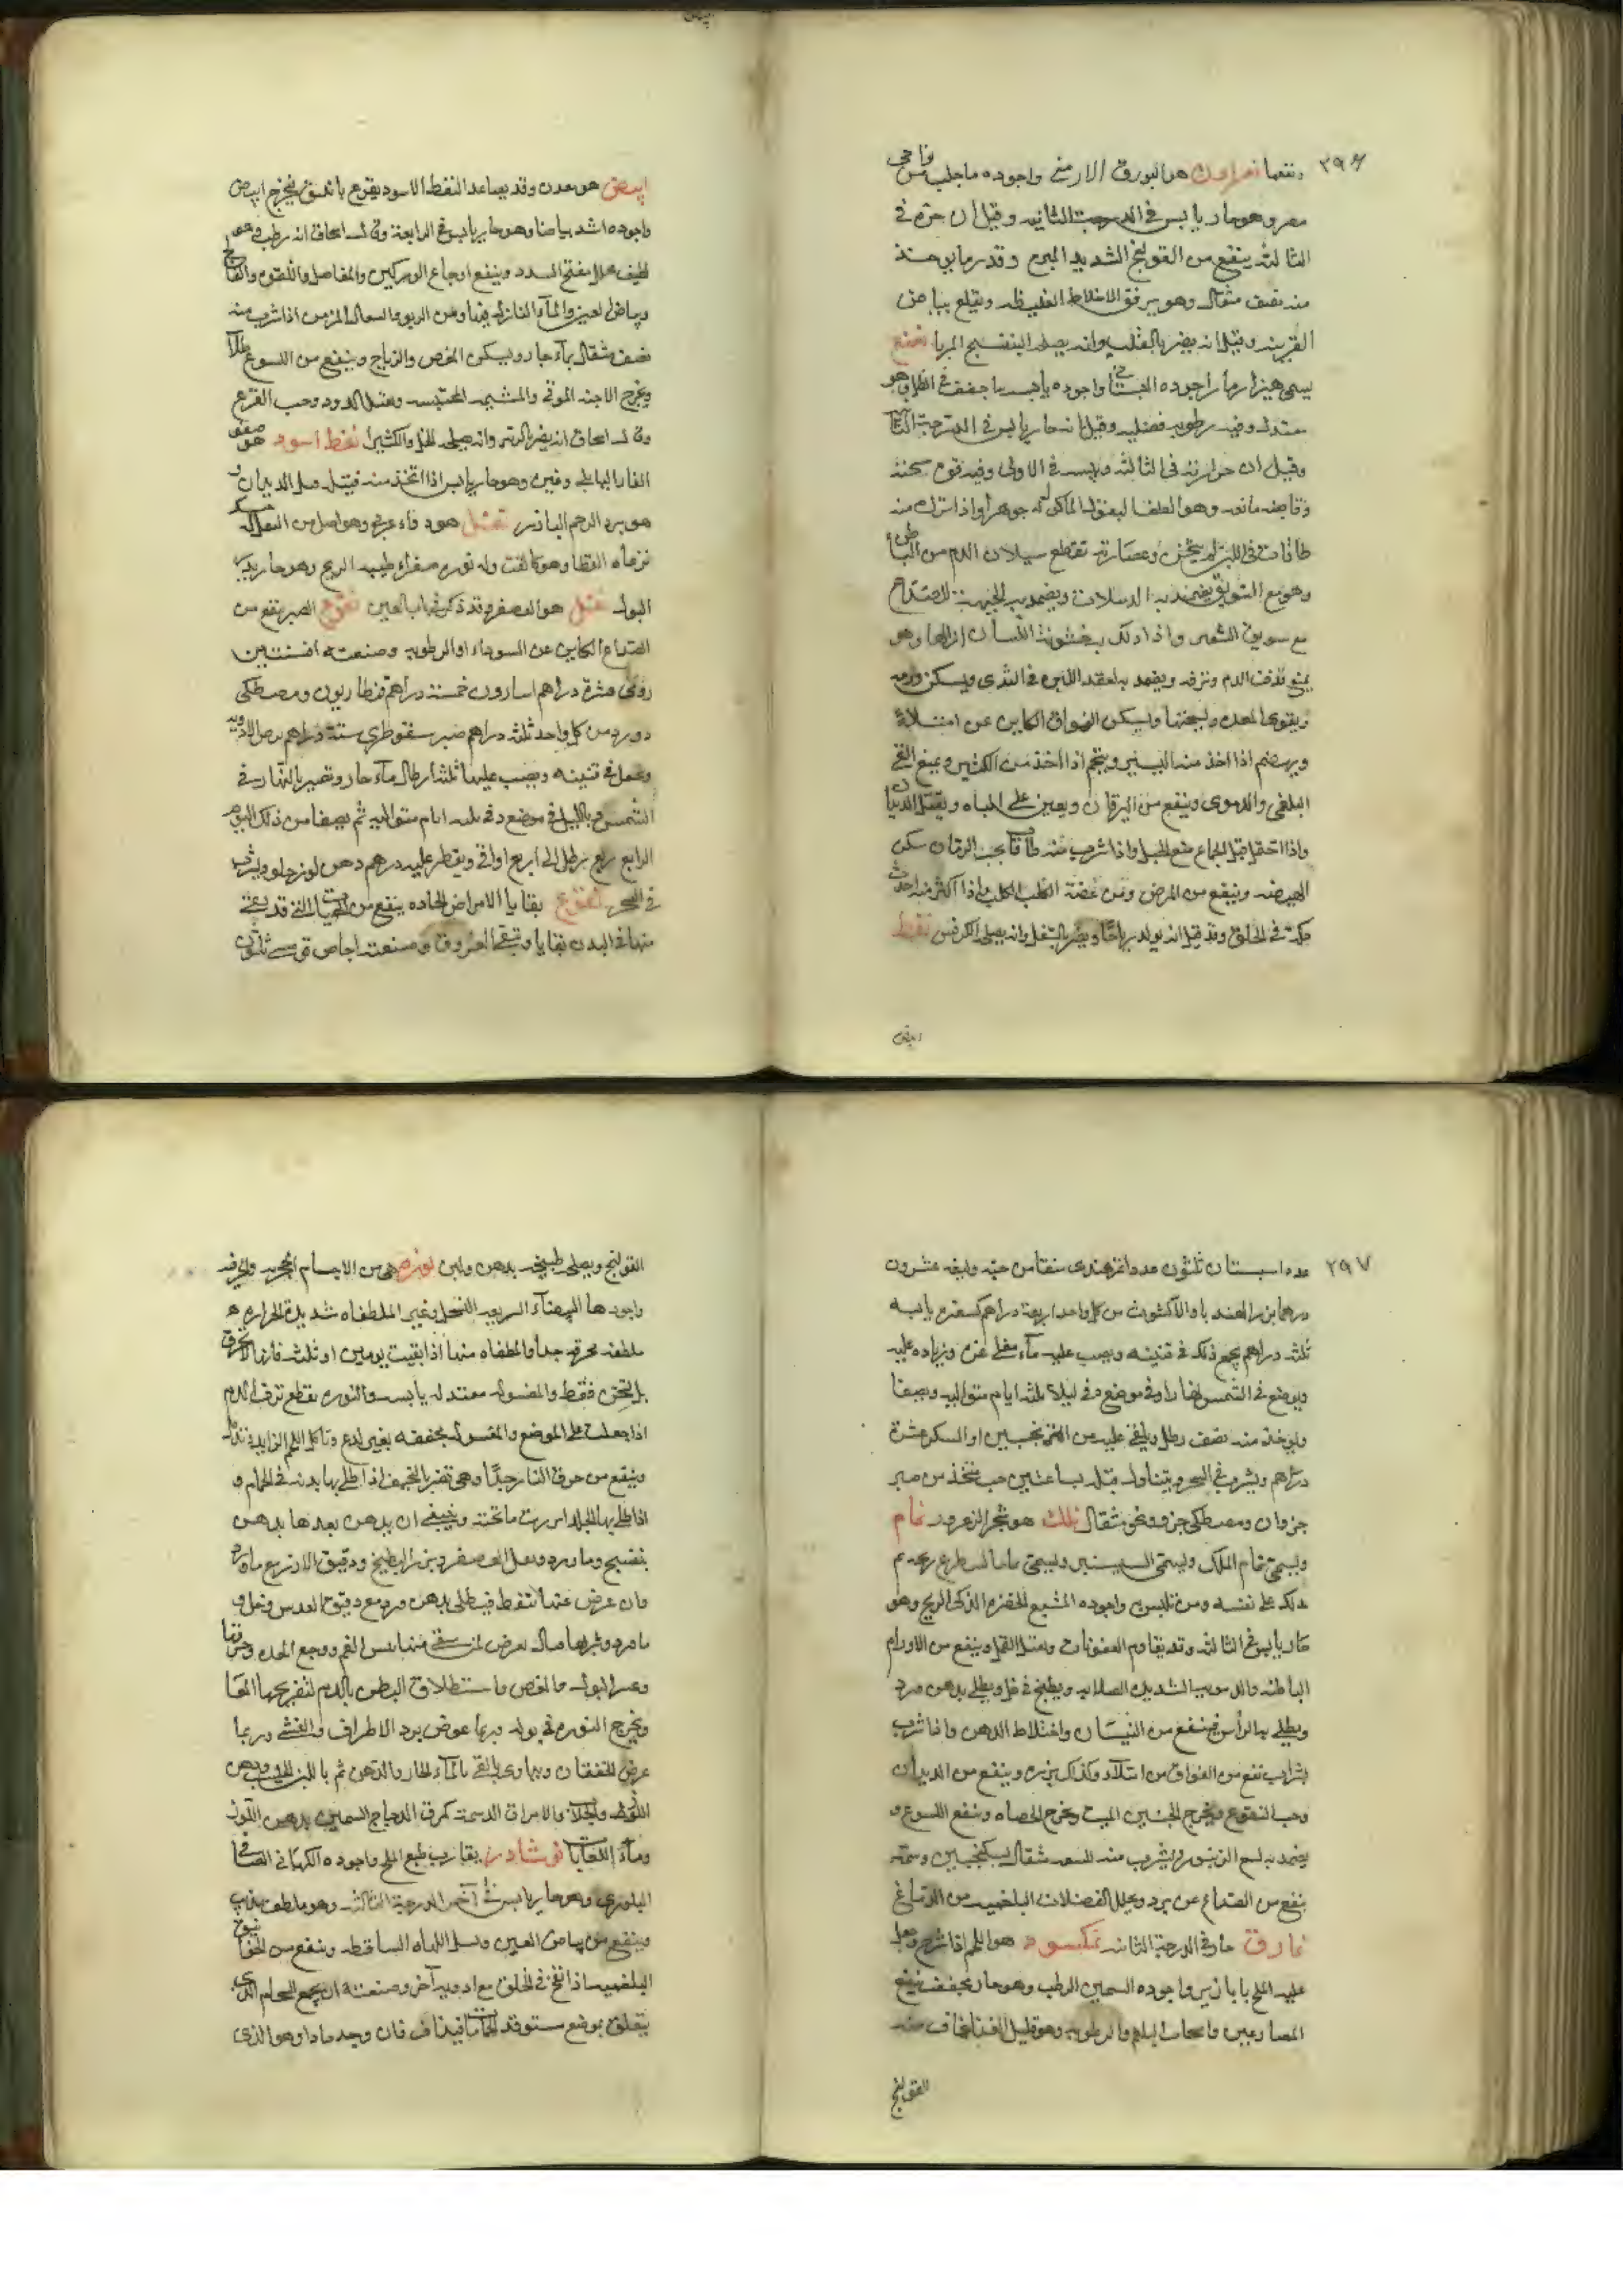 ٢٩٦
هو البورق الارمني واجوده ما جلب من نواحي
مصر وهو حار يابس في الدرجة الثانيه وقيل ان حره في
الثالثه ينفع من القولنج الشديد المبرح وقدر ما يوخذ
منه نصف مثقال وهو يرقق الاخلاط الغليظه ويقلع بياض
القرنيه وقيل انه يضر بالمثانه وانه يصلحه البنفسج المربا نعنع
واجوده يابسه ما جفف في الظل وهو
معتدل وفيه رطوبه فضليه وقيل انه حار يابس في الدرجة الثانية
وقيل ان حرارته في الثالثه ويبسه في الاولى وفيه قوه مسخنه
وقابضه مانعه وهو الطف البقول الماكوله جوهرا واذا ترك منه
طاقات في اللبن لم يتجبن وعصارته تقطع سيلان الدم من الباطن
وهو مع السويق يضمد به الدبيلات ويضمد به الجبهه للصداع
مع سويق الشعير واذا دلك به خشونة اللسان ازالها وهو
يمنع قذف الدم ونزفه ويضمد به لعقد اللبن في الثدي ويسكن ورمه
ويقوي المعده ويسخنها ويسكن الفواق الكاين عن امتلاء
ويهضم اذا اخذ منه اليسير ويتخم اذا اخذ منه الكثير ويمنع القي
البلغمي والدموي وينفع من اليرقان ويعين على الباه ويقتل الديدان
واذا احتمل قبل الجماع منع الحبل واذا شرب منه طاقات بحب الرمان سكن
الهيضه وينفع من المرض ومن عضة الكلب الكلب واذا اكثر منه احدث
حكه في الحلق وقد قيل انه يولد رياحا ويضر بالسفل وانه يصلحه الكرفس نفط
ابيض
ابيض هو معدن وقد يصاعد النفط الاسود بقرع بانبيق فيخرج ابيض
واجوده اشد بياضا وهو حار يابس في الرابعة وقال اسحاق انه رطب وهو
لطيف محلل مفتح للسدد وينفع اوجاع الوركين والمفاصل واللقوه والفالج
وبياض العين والماء النازل فيها ومن الربو والسعال المزمن اذا شرب منه
نصف مثقال بماء حار ويسكن المغص والرياح وينفع من اللسوع طلاء
ويخرج الاجنه الموتى والمشيمه المحتبسه ويقتل الدود وحب القرع
وقال اسحاق انه يضر بالريه وانه يصلحه الخل والكثيرا نفط اسود هو صفو
القار البابلي وغيره وهو حار يابس اذا اتخذ منه فتيله قتل الديدان و
هو يبرد الرحم البارده نفل هو دواء عربي وهو اصل من البقول
ترعاه القطا وهو كالقت وله نوره صفراء طيبه الريح وهو حار يدر
البول نقل هو العصفر وقد ذكر في باب العين نقوع الصبر ينفع من
الصداع الكاين عن السوداء او الرطوبه وصنعته افسنتين
رومي عشرة دراهم اسارون خمسة دراهم قنطاريون ومصطكى
وورد من كل واحد ثلثه دراهم صبر سقوطري ستة دراهم يرض الادويه
وتجعل في قنينه ويصب عليها ثلثه ارطال ماء حار وتصير بالنهار في
الشمس وبالليل في موضع دفي ثلثه ايام متواليه ثم يصفا من ذلك اليوم
الرابع ربع رطل الى اربع اواقي ويقطر عليه درهم دهن لوز حلو ويشرب
في السحر نقوع بقايا الامراض الحاده ينفع من الحميات التي قد بقي
منها في البدن بقايا وتنقي العروق وصنعته اجاص قومسي ثلثون
٢٩٧
عدد اسبستان ثلثون عددا تمر هندي منقا من حبه وليفه عشرون
درهما بزر الهندبا والاكشوث من كل واحد اربعة دراهم كسفره يابسه
ثلثه دراهم يجمع ذلك في قنينه ويصب عليه ماء مغلي غمره وزياده عليه
ويوضع في الشمس نهارا وفي موضع دفي ليلا ثلثه ايام متواليه ويصفا
ويوخذ منه نصف رطل ويلقى عليه من الترنجبين او السكر عشرة
دراهم ويشرب في السحر ويتناول قبله بساعتين حب متخذ من صبر
جزوان ومصطكى جزو وغو مثقال نلك هو شجر الزعرور نمام
ويسمى نمام الملك ويسمى السيسنبر ويسمى نماما لسطوع ريحه
يدل على نفسه ومن تلبس به واجوده المشبع الخضره الذكي الريح وهو
حار يابس في الثالثه وقد يقاوم العفونات ويقتل القمل وينفع من الاورام
الباطنه والدمويه الشديده الصلابه ويطبخ في خل ويطلى بدهن ورد
ويطلى به الراس فينفع من النسيان واختلاط الذهن واذا شرب
بشراب نفع من الفواق من امتلاء وكذلك بزره وينفع من الديدان
وحب القرع ويخرج الجنين الميت ويخرج الحصاه وينفع اللسوع و
يضمد به لسع الزنبور ويشرب منه للسعه مثقال بسكنجبين وشمه
ينفع من الصداع عن برد ويحلل الفضلات البلغميه من الدماغ
نمارق حار في الدرجة الثانيه نمكسود هو اللحم اذا شرح وجعل
عليه الملح بابازير واجوده السمين الرطب وهو حار مجفف ينفع
المصارعين واصحاب البلغم والرطوبه وهو قليل الغذا يخاف منه
القولنج
القولنج ويصلح طبيخه بدهن ولبن نوره هي من الاجسام الحجريه والخزفيه
واجودها البيضاء السريعه التحلل وغير المطفاه شديدة الحراره
ملطفه محرقه جدا والمطفاه منها اذا بقيت يومين او ثلثه فانها لا تحرق
بل تسخن فقط والمغسوله معتدله يابسه والنوره تقطع نزف الدم
اذا جعلت على الموضع والمغسوله مجففه بغير لدع وتاكل اللحم الزايد
وينفع من حرق النار جدا وهي تضر بالنحيف اذا طلي بها بدنه في الحمام و
اذا طلي بها الجلد اورت ما تحته وينبغي ان يدهن بعدها بدهن
بنفسج وما ورد ويغسل بعصفر وبزر البطيخ ودقيق الارز مع ماء ورد
وان عرض عنها تنفط فيطلى بدهن ورد مع دقيق العدس وخل و
ماء ورد وشربها قتال يعرض لمن سقي منها يبس الفم ووجع المعده وحرقتها
وعسر البول والمغص واستطلاق البطن بالدم لتقريحها المعا
وتخرج النوره في بوله وربما عرض برد الاطراف والغشي وربما
عرض الخفقان ويداوى بالقي بالماء الحار والدهن ثم باللبن الحليب ودهن
اللوز والجلاب والامراق الدسمه كمرق الدجاج السمين بدهن اللوز
وماء اللعابات نوشادر يقارب طبع الملح واجوده الكرماني الصافي
البلوري وهو حار يابس في آخر الدرجة الثالثه وهو ملطف مذيب
وينفع من بياض العين ويشيل اللهاه الساقطه وينفع من الخوانيق
البلغميه اذا نفخ في الحلق مع ادويه آخر وصنعته ان يجمع السخام الذي
يتعلق بموضع مستوقد الحمامات فيذاق فان وجد مادا وهو الذي